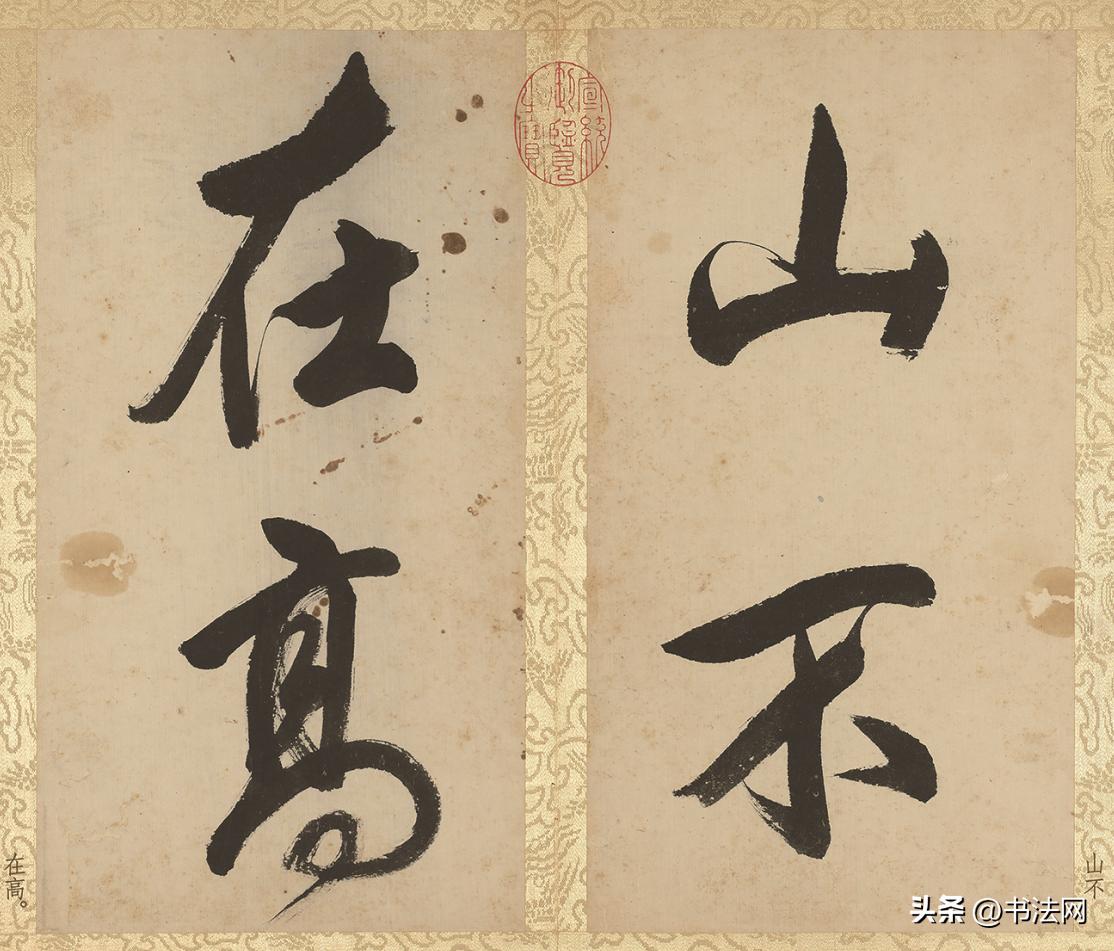 山不
在高
宣統御覽之寶
山不
在高。
头条 @书法网